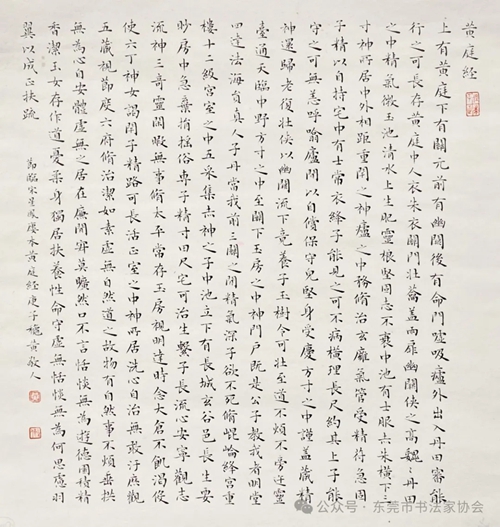 黄庭经
上有黄庭下有關元前有幽闕後有命門嘘吸廬外出入丹田審能
行之可長存黄庭中人衣朱衣關門壮蘥盖兩扉幽闕侠之高魏魏丹田
之中精氣微玉池清水上生肥靈根堅固志不衰中池有士服赤朱横下三
寸神所居中外相距重閇之神廬之中務脩治玄廱氣管受精符急固
子精以自持宅中有士常衣絳子能見之可不病横理長尺約其上子能
守之可無恙呼噏廬間以自償保守完堅身受慶方寸之中謹盖藏精
神還歸老復壮侠以幽闕流下竟養子玉樹令可壮至道不煩不旁迕靈
臺通天臨中野方寸之中至關下玉房之中神門户既是公子教我者明堂
四達法海負真人子丹當我前三關之閒精氣深子欲不死脩崐崘絳宮重
樓十二級宮室之中五采集赤神之子中池立下有長城玄谷邑長生要
眇房中急棄捐搖俗專子精寸田尺宅可治生繫子長流心安寧觀志
流神三奇靈閒暇無事脩太平常存玉房視明達時念大倉不飢渴役
使六丁神女謁閇子精路可長活正室之中神所居洗心自治無敢汙歷觀
五藏視節度六府脩治潔如素虚無自然道之故物有自然事不煩垂拱
無為心自安體虚無之居在廉間寂莫曠然口不言恬惔無為遊德園積精
香潔玉女存作道憂柔身獨居扶養性命守虚無恬惔無為何思慮羽
翼以成正扶疏
公众号·东莞市书法家协会